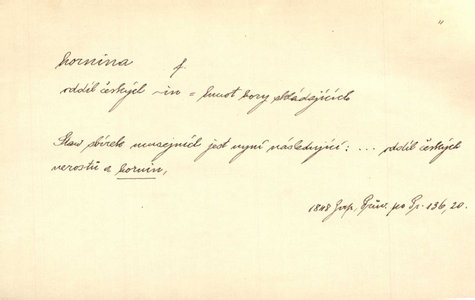 "
hornina f.
oddíl českých ~in = hmot hory skládajících
Stav sbírek musejních jest nyní následující: ... oddíl českých
nerostů a hornin,
1848 Zap. Prův. po Pr. 136, 20.